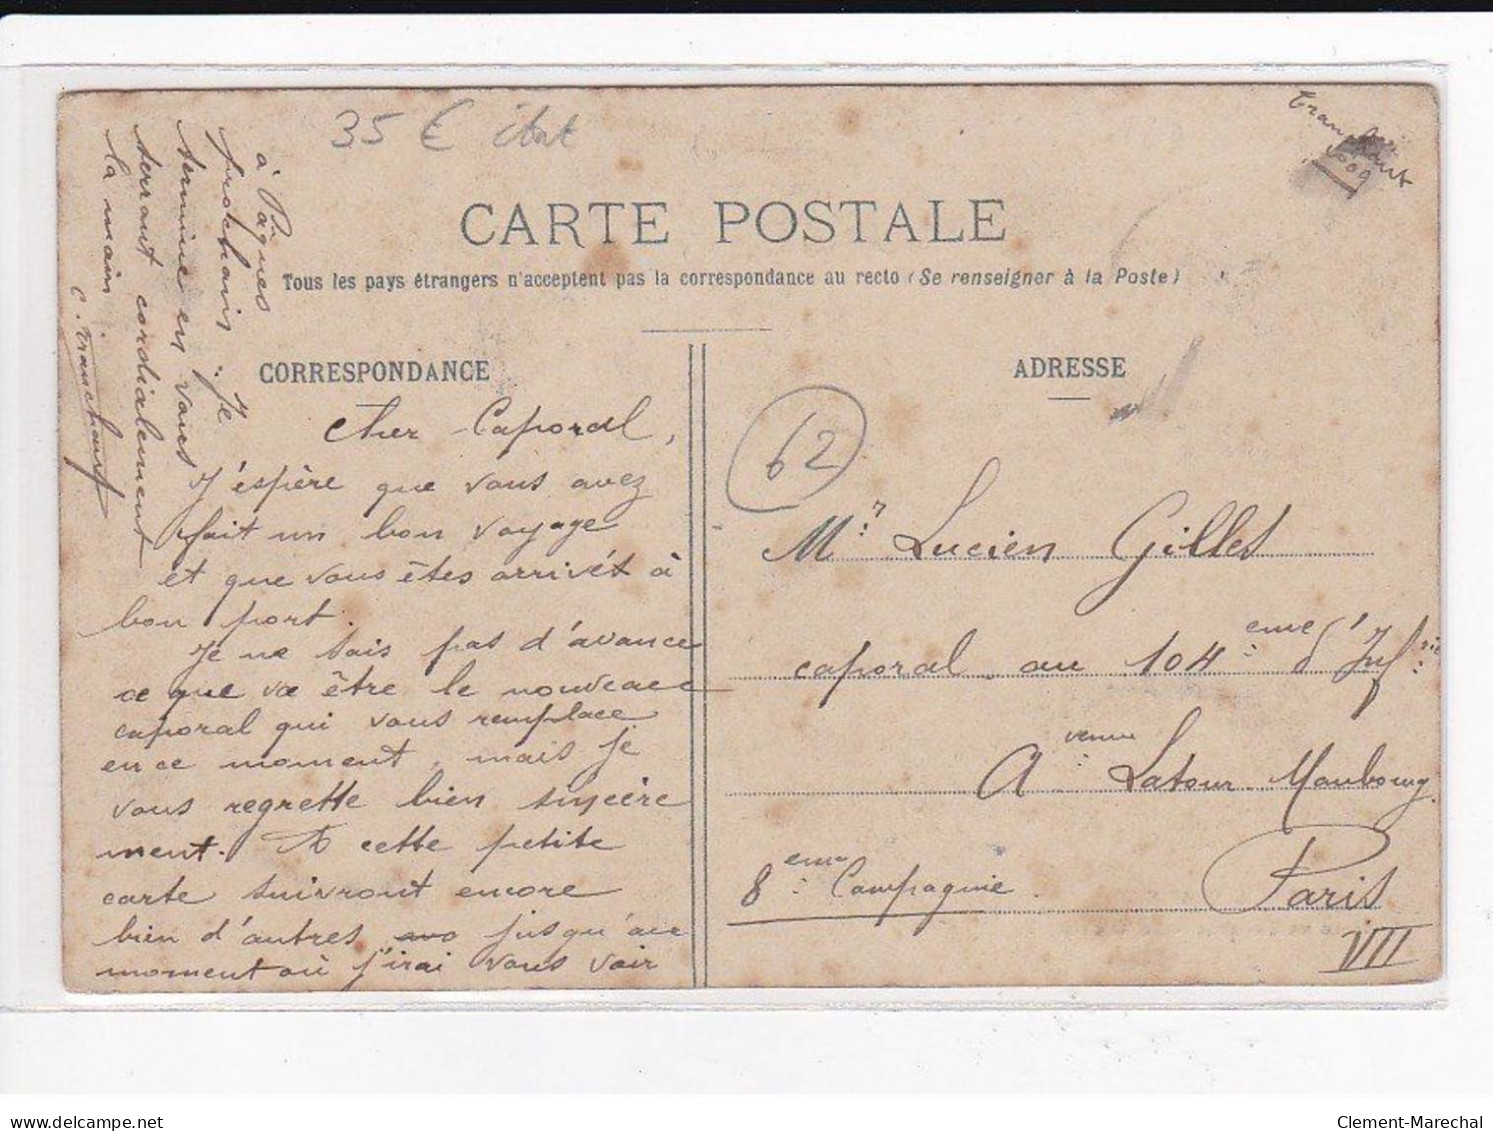 35 € état
Tranchant
CARTE POSTALE
Tous les pays étrangers n'acceptent pas la correspondance au recto (Se renseigner à la Poste)
CORRESPONDANCE
Cher Caporal,
J'espère que vous avez
fait un bon voyage
et que vous êtes arrivés à
bon port.
Je ne sais pas d'avance
ce que va être le nouveau
caporal qui vous remplace
en ce moment, mais je
vous regrette bien sincère
ment. A cette petite
carte suivront encore
bien d'autres jusqu'au
moment où j'irai vous voir
à Pâques
prochain. Je
termine en vous
serrant cordialement
la main
C. Tranchant
ADRESSE
62
Mr Lucien Gilles
caporal au 104eme d'Infrie
Avenue Latour Maubourg
8eme Compagnie. Paris
VII
delcampe.net
Clement-Marechal